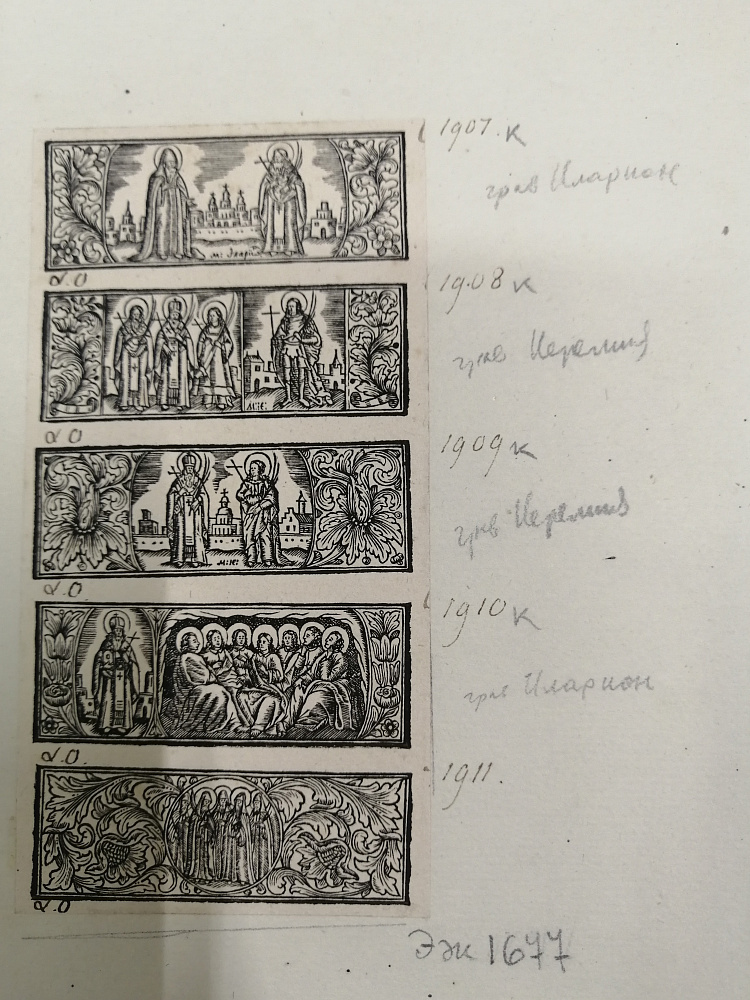 1907. к
грав Иларион
м: Лларі
л.О
1908 к
грав Иеремия
М:К:
л.О
1909 к
грав Иеремия
м:К:
л.О.
1910 к
грав Иларион
л.О.
1911.
л.О
Эк 1677